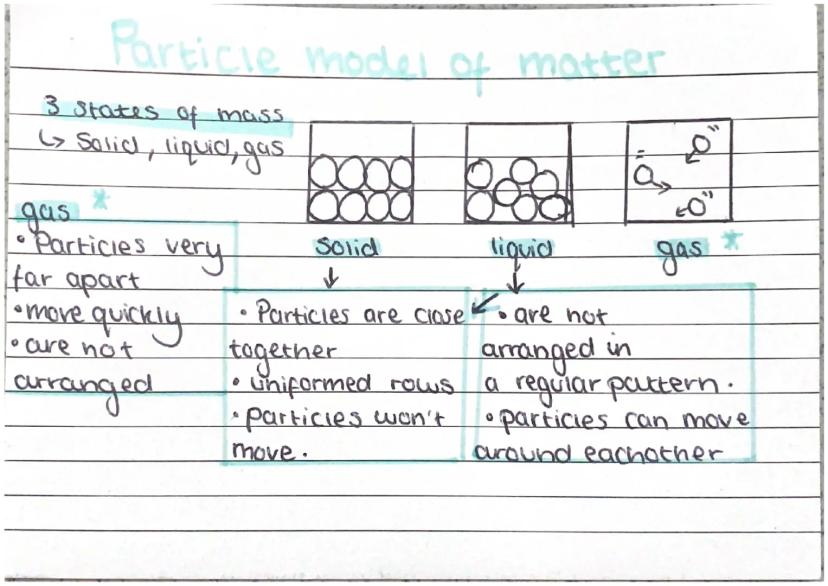 Particle model of matter
3 states of mass
↳ Solid, liquid, gas
solid
liquid
gas *
gas *
• Particles very
far apart
• move quickly
• are not
arranged
• Particles are close
together
• uniformed rows
• particles won't
move.
• are not
arranged in
a regular pattern.
• particles can move
around eachother